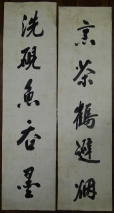 烹茶鶴避煙
洗硯魚吞墨